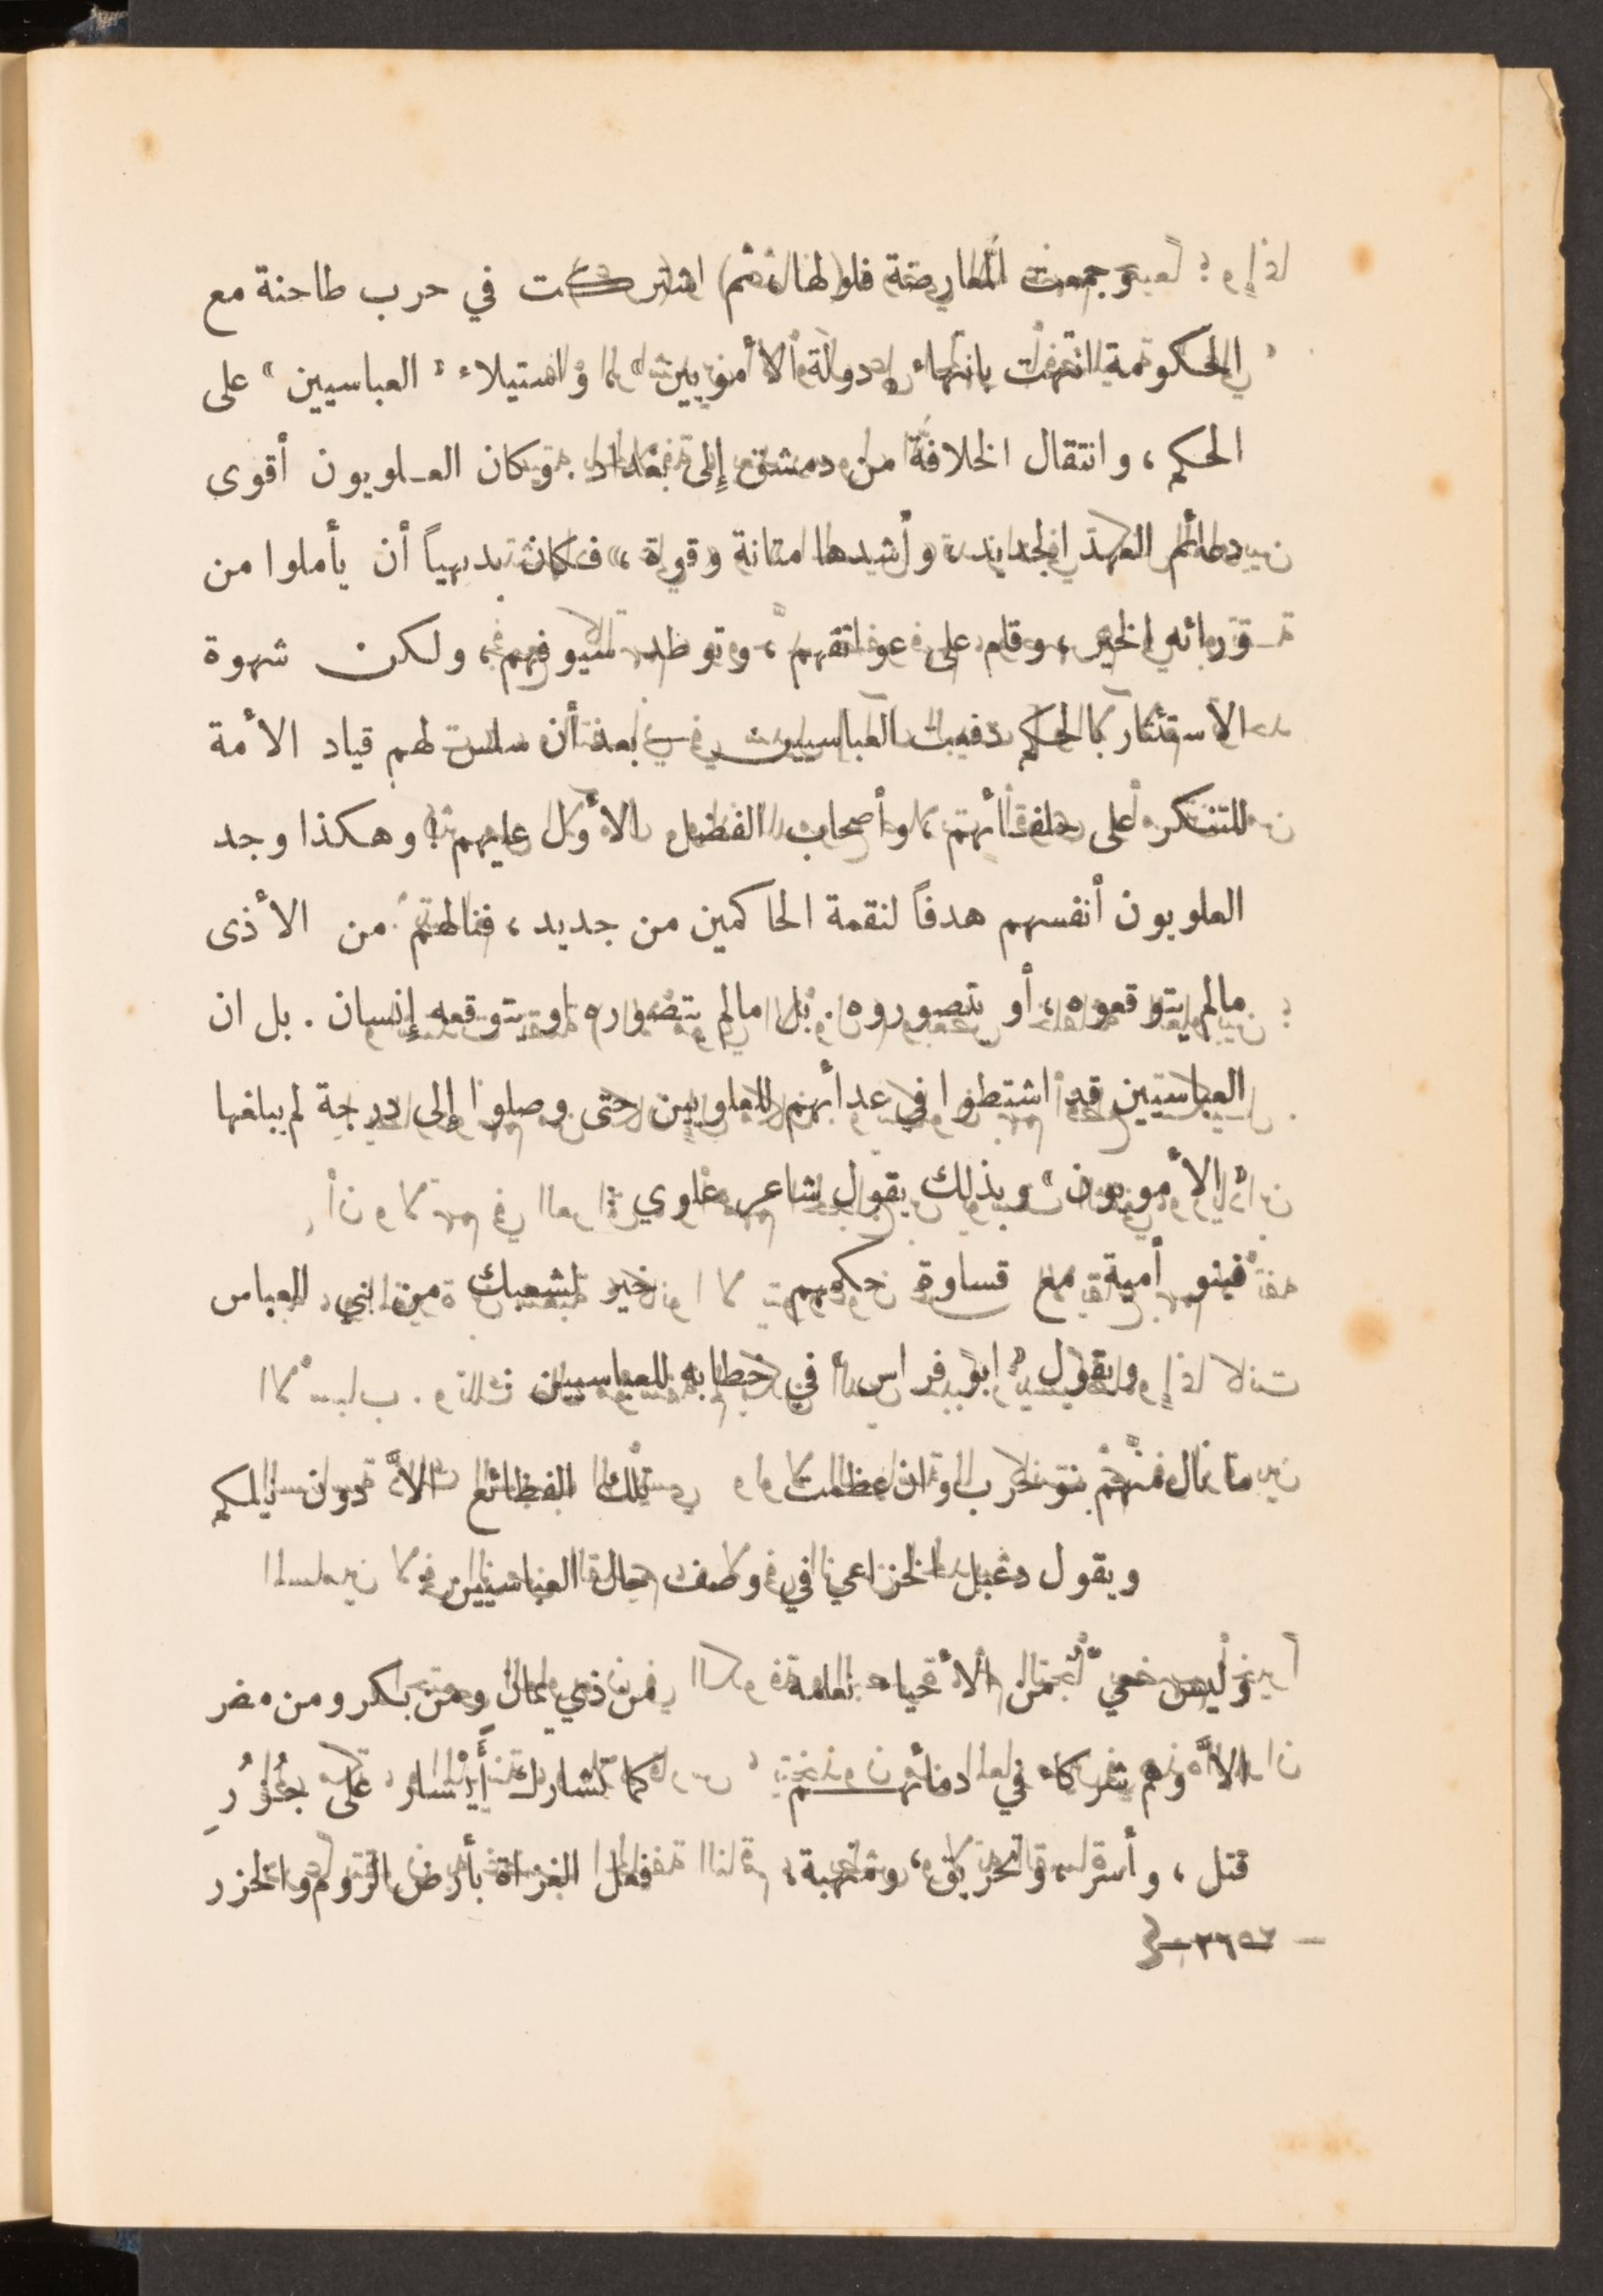 وجمعت المعارضة فلولها، ثم اشتركت في حرب طاحنة مع
الحكومة انتهت بانتهاء دولة الأمويين» واستيلاء « العباسيين » على
الحكم، وانتقال الخلافة من دمشق إلى بغداد. وكان العلويون أقوى
دعائم العهد الجديد، وأشدها متانة وقوة، فكان بديهياً أن يأملوا من
ورائه الخير، وقام على عواتقهم، وتوطد بسيوفهم، ولكن شهوة
الاستئثار بالحكم دفعت العباسيين بعد أن سلس لهم قياد الأمة
للتنكر على حلفائهم، وأصحاب الفضل الأول عليهم! وهكذا وجد
العلويون أنفسهم هدفاً لنقمة الحاكمين من جديد، فنالهم من الأذى
مالم يتوقعوه، أو يتصوروه. بل مالم يتصوره او يتوقعه إنسان. بل ان
العباسيين قد اشتطوا في عدائهم للعلويين حتى وصلوا إلى درجة لم يبلغها
« الأمويون » وبذلك يقول شاعر علوي :
فبنو أمية مع قساوة حكمهم خير لشعبك من بني العباس
ويقول « ابو فراس » في خطابه للعباسيين
ما نال منهم بنو حرب وان عظمت تلك الفظائع الاّ دون نيلكم
ويقول دعبل الخزاعي في وصف حال العباسيين
وليس حي من الأحياء نعلمه من ذي يمان ومن بكر ومن مضر
الاّ وهم شركاء في دمائهم كما تشارك أَيْسار على جُزُرِ
قتل، وأسر، وتحريق، ومنهبة، فعل الغزاة بأرض الروم والخزر